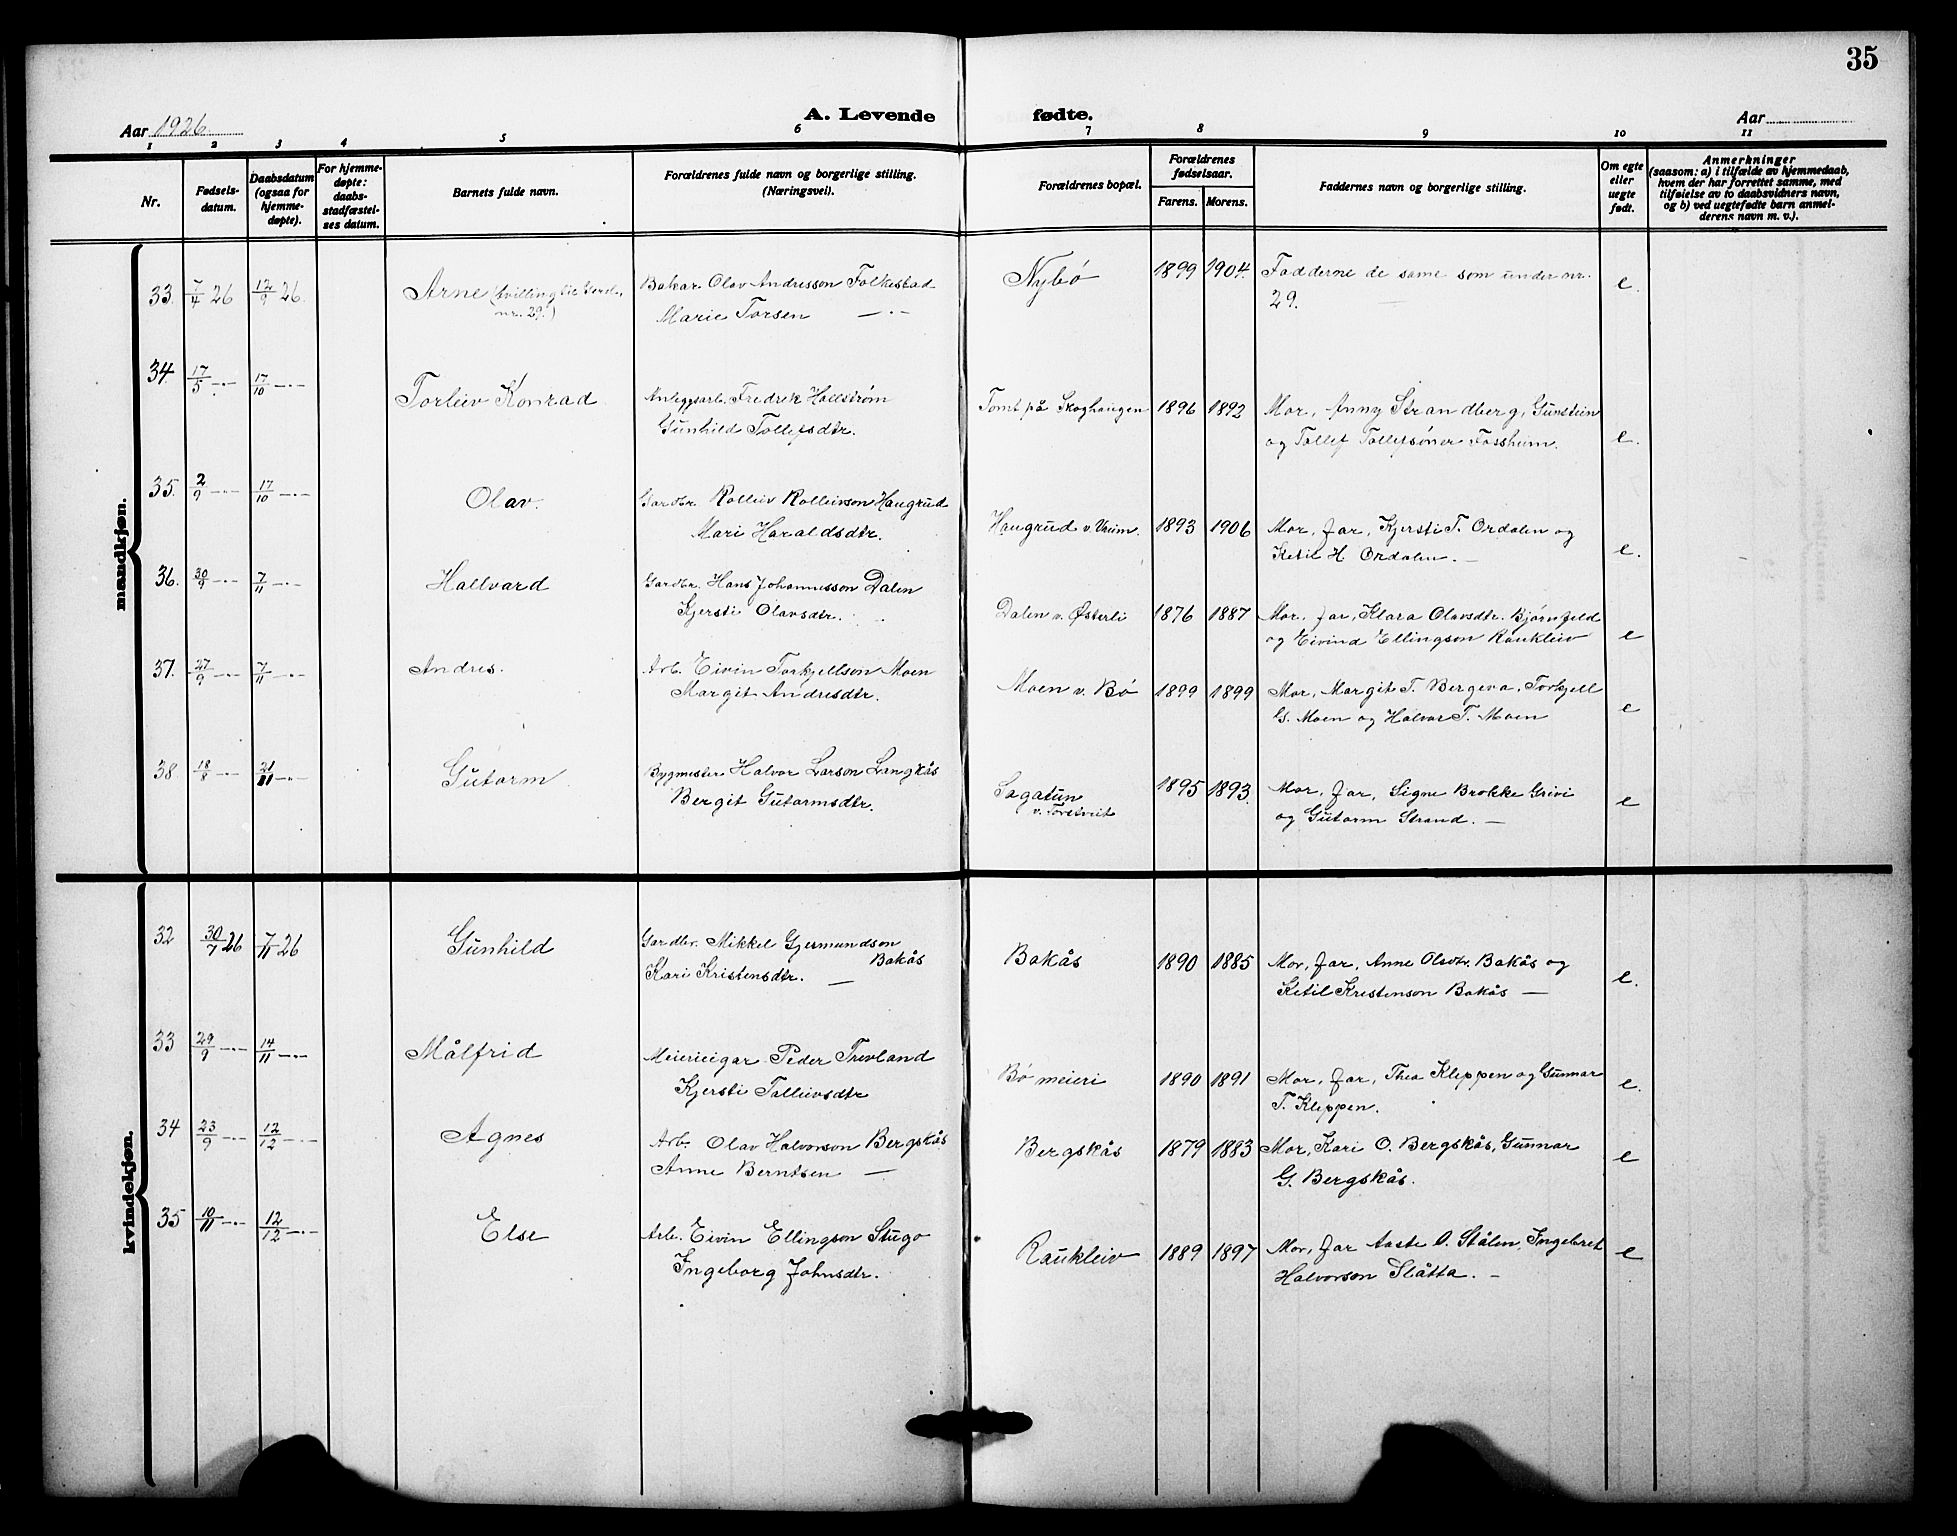 35
Aar 1926
A. Levende fødte.
Aar
1 2 3 4 5 6 7 8 9 10 11
Nr.
Fødsels-
datum.
Daabsdatum
(ogsaa for
hjemme-
døpte).
For hjemme-
døpte:
daabs-
stadfæstel-
ses datum.
Barnets fulde navn.
Forældrenes fulde navn og borgerlige stilling.
(Næringsvei).
Forældrenes bopæl.
Forældrenes
fødselsaar.
Farens. Morens.
Faddernes navn og borgerlige stilling.
Om egte
eller
uegte
født.
Anmerkninger
(saasom: a) i tilfælde av hjemmedaab,
hvem der har forrettet samme, med
tilføielse av to daabsvidners navn,
og b) ved uegtefødte barn anmel-
derens navn m. v.).
mandkjøn.
33. 7/4 26 12/9 26. Arne (tvilling til
nr. 29.)
Bakar Olav Andresson Folkestad
Marie Torsen —·—
Nybø 1899 1904. Fadderne de same som under nr.
29. e.
34. 17/5 —·— 17/10 —·— Torleiv Konrad
Anleggsarb. Fredrik Hallstrøm
Gunhild Tollefsdtr.
Tomt på Skoghaugen 1896 1892 Mor, Anny Strandberg, Gunstein
og Tollef Tollefsøner Fossheim. e.
35. 2/9 —·— 17/10 —·— Olav.
Gardbr. Rolleiv Rolleivson Haugrud
Mari Haraldsdtr.
Haugrud v. Vreim. 1893 1906 Mor, far, Kjersti T. Ordalen og
Ketil H Ordalen. — e.
36. 30/9 —·— 7/11 —·— Hallvard
Gardbr. Hans Johannesson Dalen
Kjersti Olavsdtr.
Dalen v. Østerli 1876 1887 Mor, far, Klara Olavsdtr. Bjørnfeld
og Eivind Ellingson Raukleiv e
37. 27/9 —·— 7/11 —·— Andres.
Arb. Eivin Torkjellson Moen
Margit Andresdtr.
Moen v. Bø 1899 1899 Mor, Margit T. Bergeva, Torkjell
G. Moen og Halvor T. Moen e
38 18/8 —·— 21/11 —·— Gutorm
Bygmester Halvor Larson Langkås
Bergit Gutormsdtr.
Sagatun
v. Torstveit
1895 1893. Mor, far, Signe Brokke Grivi
og Gutorm Strand. — e
kvindekjøn.
32 30/7 26 7/11 26 Gunhild
Gardbr. Mikkel Gjermundson
Bakås
Kari Kristensdtr. —
Bakås 1890 1885 Mor, far, Anne Olsdtr. Bakås og
Ketil Kristenson Bakås — e.
33 29/9 —·— 14/11 —·— Målfrid
Meierieigar Peder Trevland
Kjersti Talleivsdtr
Bø meieri 1890 1891 Mor, far, Thea Kleppen og Gunnar
T. Kleppen. e.
34 23/9 —·— 12/12 —·— Agnes
Arb. Olav Halvorson Bergskås
Anne Berntsen —
Bergskås 1879 1883 Mor, Kari O. Bergskås, Gunnar
G. Bergskås. e
35 10/11 —·— 12/12 —·— Else
Arb. Eivin Ellingson Stugo
Ingeborg Johnsdtr.
Raukleiv 1889 1897 Mor, far Aaste O. Stålen, Ingebret
Halvorson Slåtta. — e